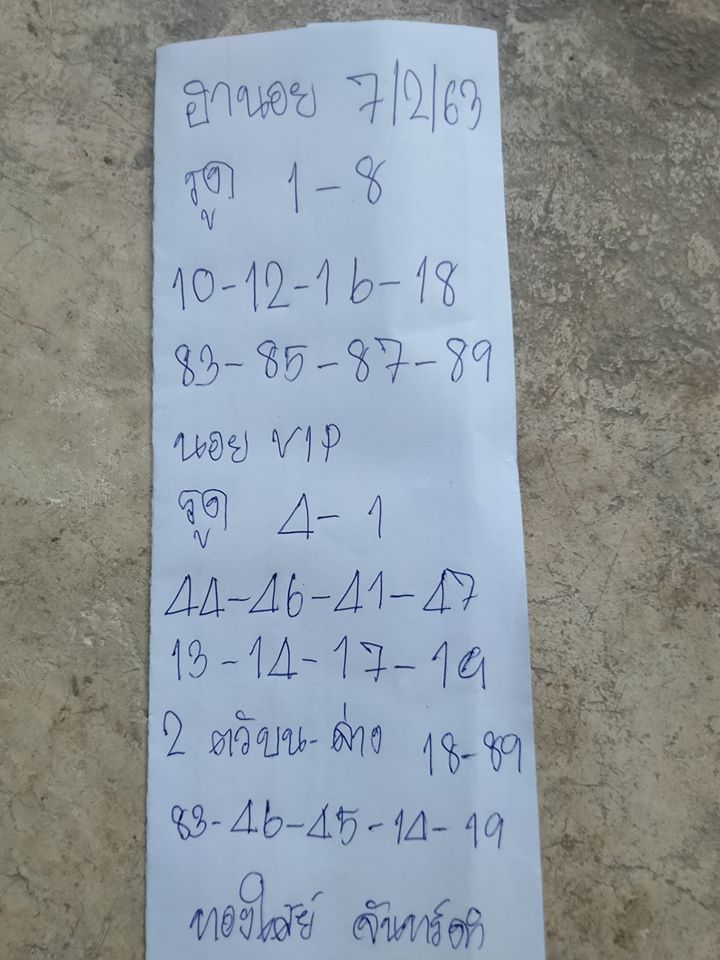 ฮานอย 7/2/63
รูด 1-8
10-12-16-18
83-85-87-89
นอย VIP
รูด 4-1
44-46-41-47
13-14-17-19
2 ตัวบน-ล่าง 18-89
83-46-45-14-19
ทองใสย์